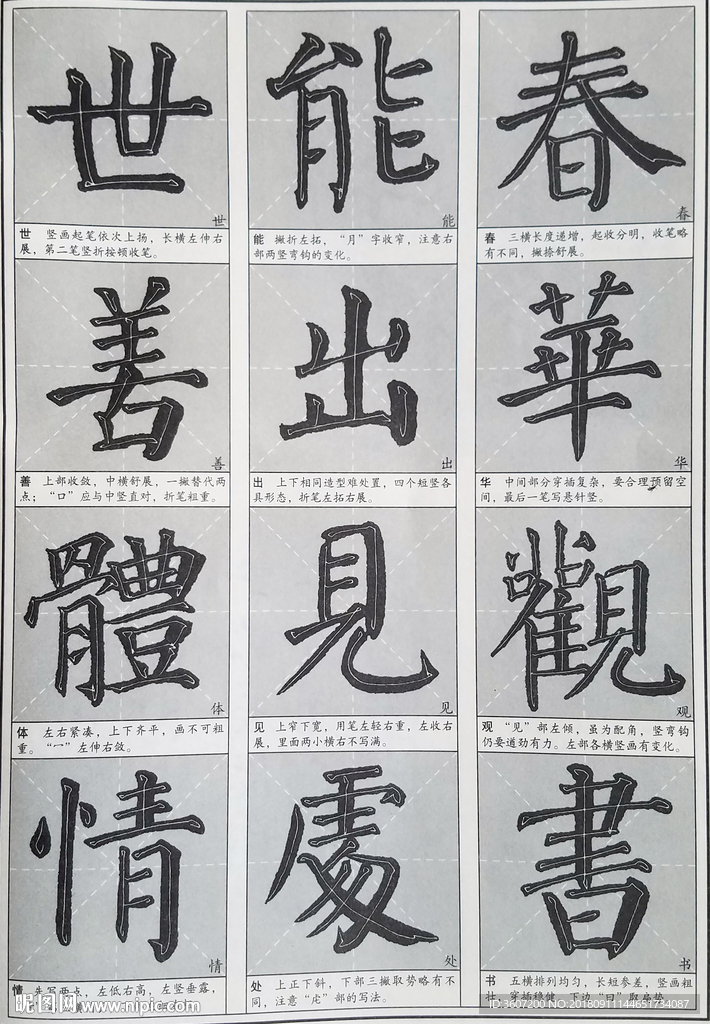 世 能 春
世 能 春
世 竖画起笔依次上扬，长横左伸右
展，第二笔竖折按顿收笔。
能 撇折左拓，“月”字收窄，注意右
部两竖弯钩的变化。
春 三横长度递增，起收分明，收笔略
有不同，撇捺舒展。
善 出 華
善 出 华
善 上部收敛，中横舒展，一撇替代两
点；“口”应与中竖直对，折笔粗重。
出 上下相同造型难处置，四个短竖各
具形态，折笔左拓右展。
华 中间部分穿插复杂，要合理预留空
间，最后一笔写悬针竖。
體 見 觀
体 见 观
体 左右紧凑，上下齐平，画不可粗
重。“冖”左伸右敛。
见 上窄下宽，用笔左轻右重，左收右
展，里面两小横右不写满。
观 “见”部左倾，虽为配角，竖弯钩
仍要遒劲有力。左部各横竖画有变化。
情 處 書
情 处 书
情 先写两点，左低右高，左竖垂露，
处 上正下斜，下部三撇取势略有不
同，注意“虍”部的写法。
书 五横排列均匀，长短参差，竖画粗
壮，穿插稳健，下边“曰”取扁势。
昵图网 www.nipic.com
ID:3607200 NO:20180911144651734087